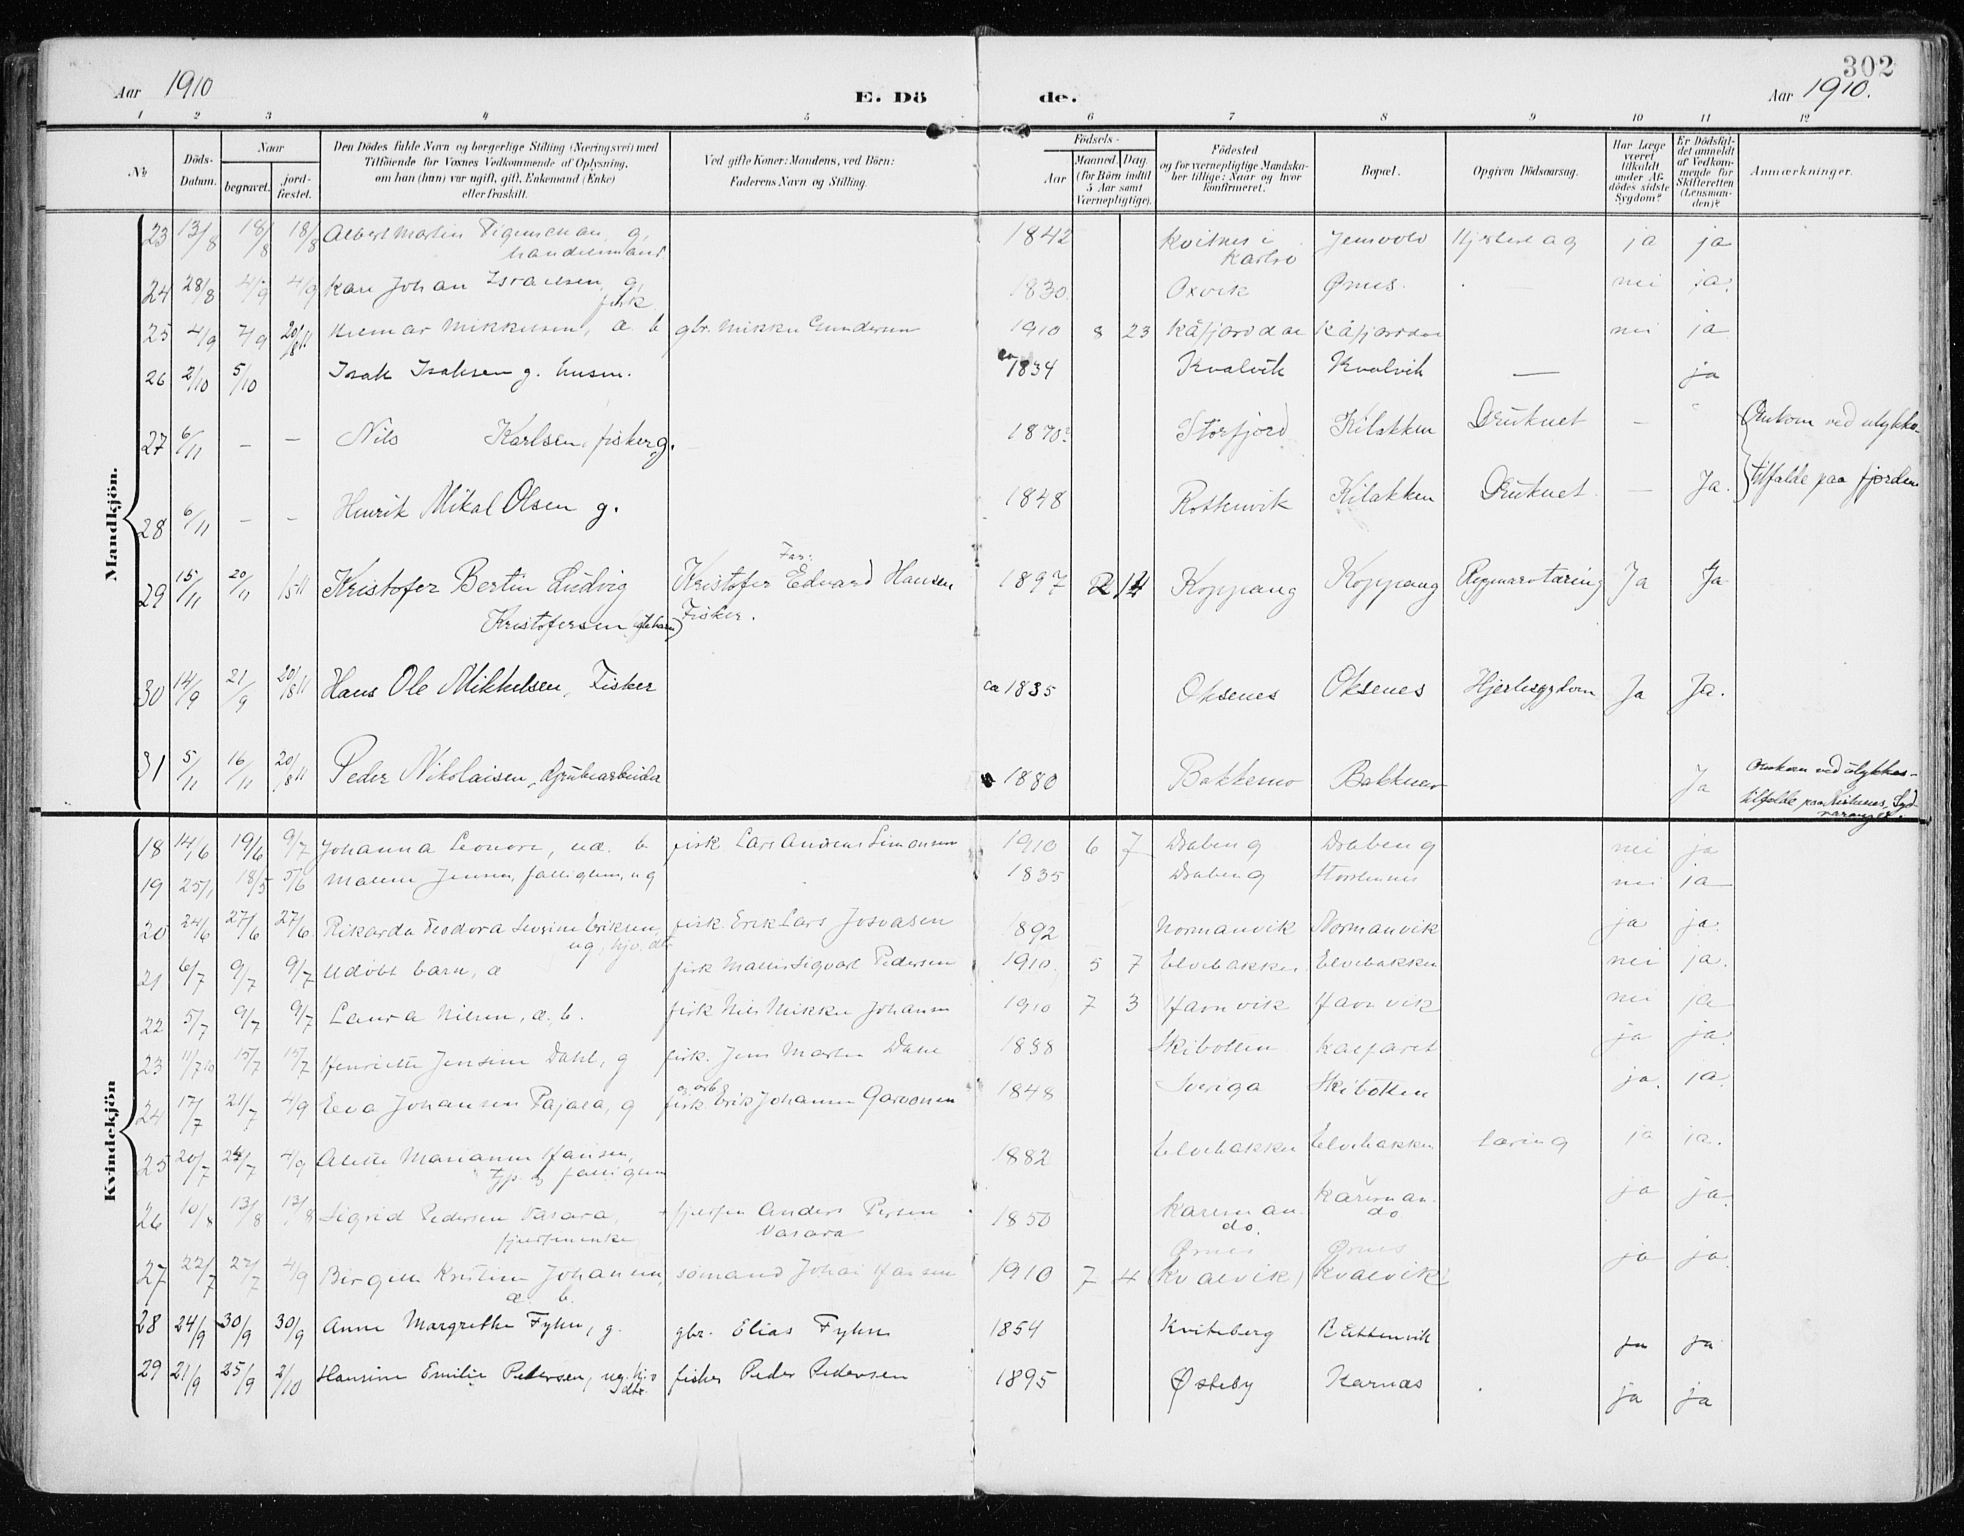 302
Aar 1910
E. Dö
de.
Aar 1910.
1 2 3 4 5 6 7 8 9 10 11 12
№
Döds-Datum.
Naar
begravet.
jord-fæstet.
Den Dödes fulde Navn og borgerlige Stilling (Næringsvei) med
Tilföiende for Voxnes Vedkommende af Oplysning,
om han (hun) var ugift, gift, Enkemand (Enke)
eller fraskilt.
Ved gifte Koner: Mandens, ved Börn:
Faderens Navn og Stilling.
Födsels-
Aar
Maaned. Dag.
(for Börn indtil
5 Aar samt
Værnepligtige).
Födested
og for værnepligtige Mandska-
ber tillige: Naar og hvor
konfirmeret.
Bopæl.
Opgiven Dödsaarsag.
Har Læge
været
tilkaldt
under Af-
dödes sidste
Sygdom?
Er Dödsfal-
det anmeldt
af Vedkom-
mende for
Skifteretten
(Lensman-
den)?
Anmærkninger.
Mandkjön.
23 13/8 18/8 18/8 Albert Martin g, 1842 Kvitnes i ja ja
handelsmand Karlsø
24 28/8 4/9 4/9 Karl Johan Israelsen, g, 1830 Oxvik Ørnes. - nei ja.
fisk
25 4/9 7/9 20/8 11 Hilmar Mikkelsen, æ. b gbr. Mikkel Gundersen 1910 8 23 Kåfjorddal Kåfjorddal nei ja
26 2/10 5/10 Isak Isaksen g. husm. ca 1834 Kvalvik Kvalvik — ja
27 6/11 – – Nils Karlsen, fisker, g. 1870? Storfjord Kilakken Druknet – " Omkom ved ulykkes-
28 6/11 – – Henrik Mikal Olsen g. 1848 Rothenvik Kilakken Druknet. – Ja. tilfælde paa fjorden
29 15/11 20/11 Kristofer Bertin Ludvig Far: Kristofer Eduard Hansen 1897 2 14 Koppang Koppang Rygmarvstæring Ja Ja
Kristofersen Fisker.
30 14/9 21/9 20/8 11 Hans Ole Mikkelsen, Fisker ca 1835 Oksenes Oksenes Hjertesygdom Ja Ja.
31 5/11 16/11 20/8 11 Peder Nikolaisen, Grubearbeider 1880 Bakkemo Bakkemo Ja Omkom ved ulykkes-
tilfælde paa Kirkenes, Syd-
varanger.
Kvindekjön
18 14/6 19/6 9/7 Johanna Leonore, uæ. b fisk Lars Andreas Simonsen 1910 6 7 Drabeng Drabeng nei ja
19 25/1 18/5 5/6 Malene Jensen, fattiglem, ug 1835 Drabeng nei ja
20 24/6 27/6 27/6 Rikarda Teodora Severine Eriksen, fisk. Erik Lars Josvasen 1892 Normanvik Normanvik ja ja.
ug, hjv. dtr
21 6/7 9/7 9/7 Udöbt barn, æ fisk Sigvart Pedersen 1910. 5 7 Elvebakken Elvebakken nei ja.
22 5/7 9/7 9/7 Laura Nilsen, æ. b. fisk Nils Mikkel Johansen 1910 7 3 Havnvik Havnvik nei ja
23 11/7 15/7 15/7 Henriette Jensine Dahl, g fisk. Jens Martin Dahl 1838 Skibotten ja ja.
24 17/7 21/7 4/9 Eeva Johansen Pajala, g fisk Erik Johannes 1848 Sveriga Skibotten ja. ja.
25 20/7 24/7 4/9 Alette Marianne Hansen, 1882 Elvebakken Elvebakken tæring ja ja.
26 10/8 13/8 13/8 Sigrid Pedersen Vasara, Anders Persen 1850 Kareman- Kareman- ja ja.
Vasara do. do
27 22/7 27/7 4/9 Birgitte Kristine Johansen, sömand Johan Hansen 1910 7 4 Ørnes (Kvalvik) Ørnes (Kvalvik) ja ja.
æ. b.
28 24/9 30/9 30/9 Anne Margrethe Fyhn, g. gbr. Elias Fyhn 1854 Kviteberg ja ja
29 21/9 25/9 2/10 Hansine Emilie Pedersen, ug. hjv fisker Peder Pedersen 1895 Østeby Karnæs ja ja
dtr.